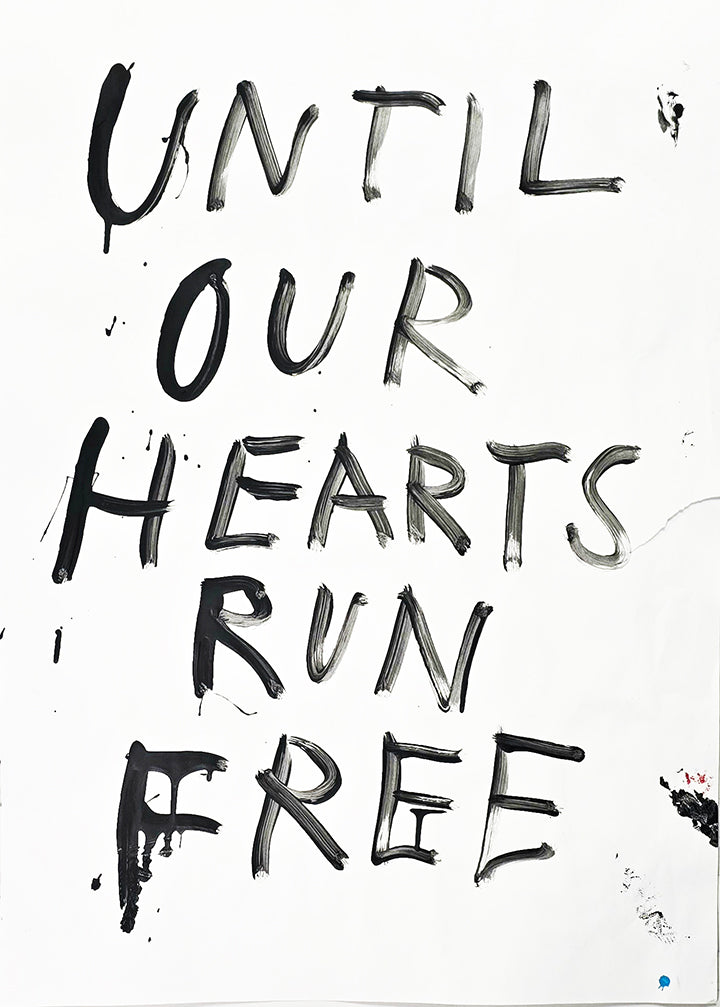 UNTIL
OUR
HEARTS
RUN
FREE